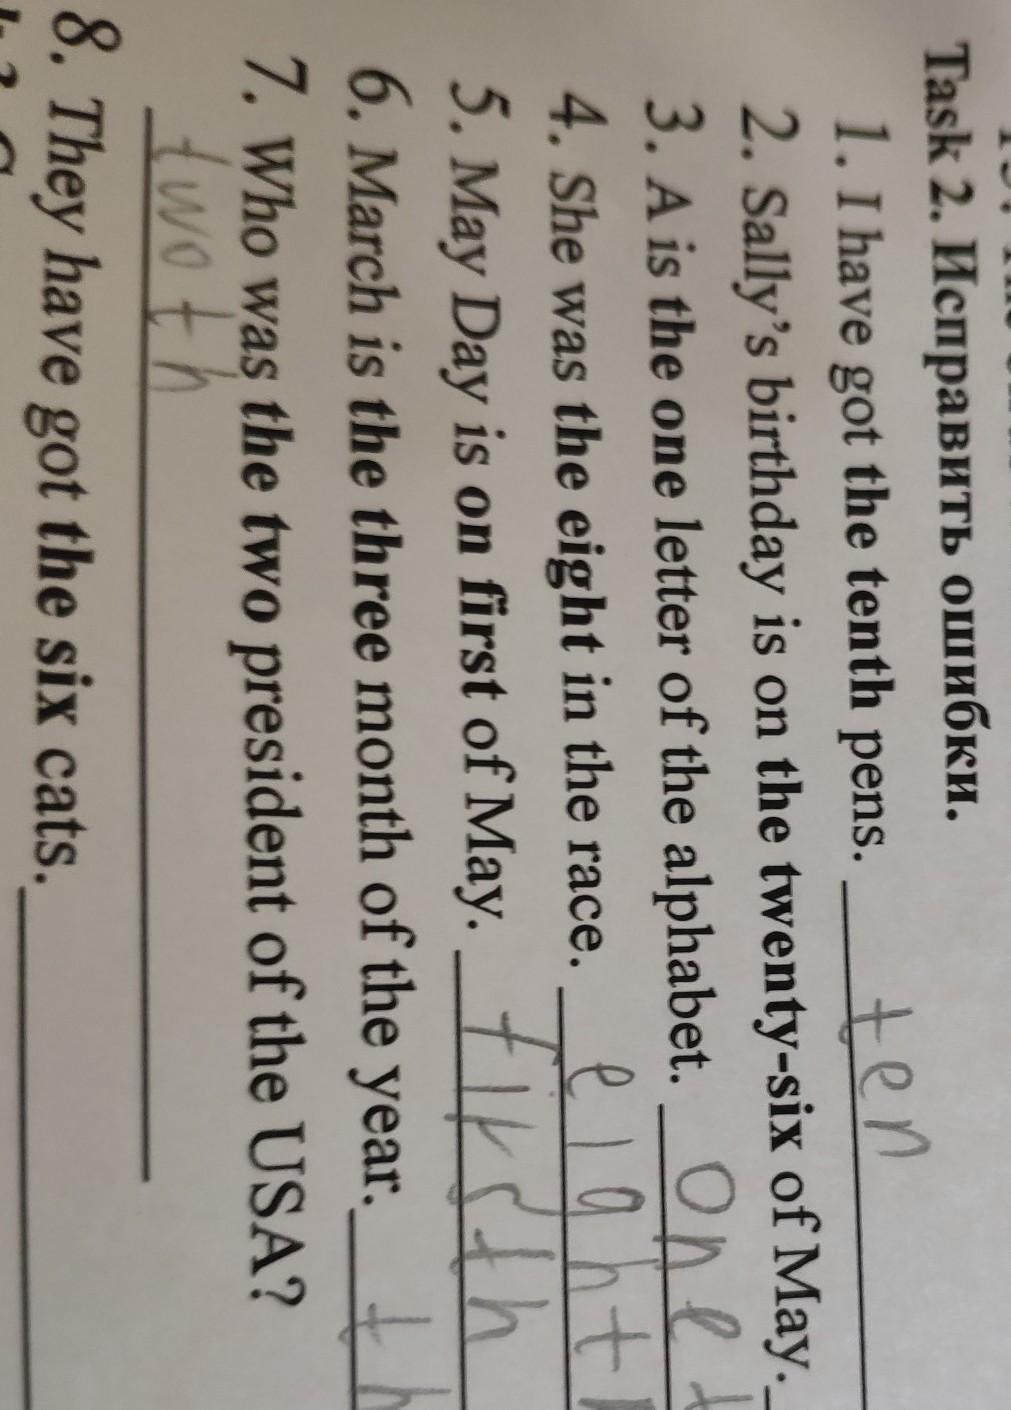 Task 2. Исправить ошибки.
1. I have got the tenth pens. ten
2. Sally's birthday is on the twenty-six of May.
3. A is the one letter of the alphabet. onet
4. She was the eight in the race. eight
5. May Day is on first of May.
6. March is the three month of the year. th
7. Who was the two president of the USA?
twoth
8. They have got the six cats.